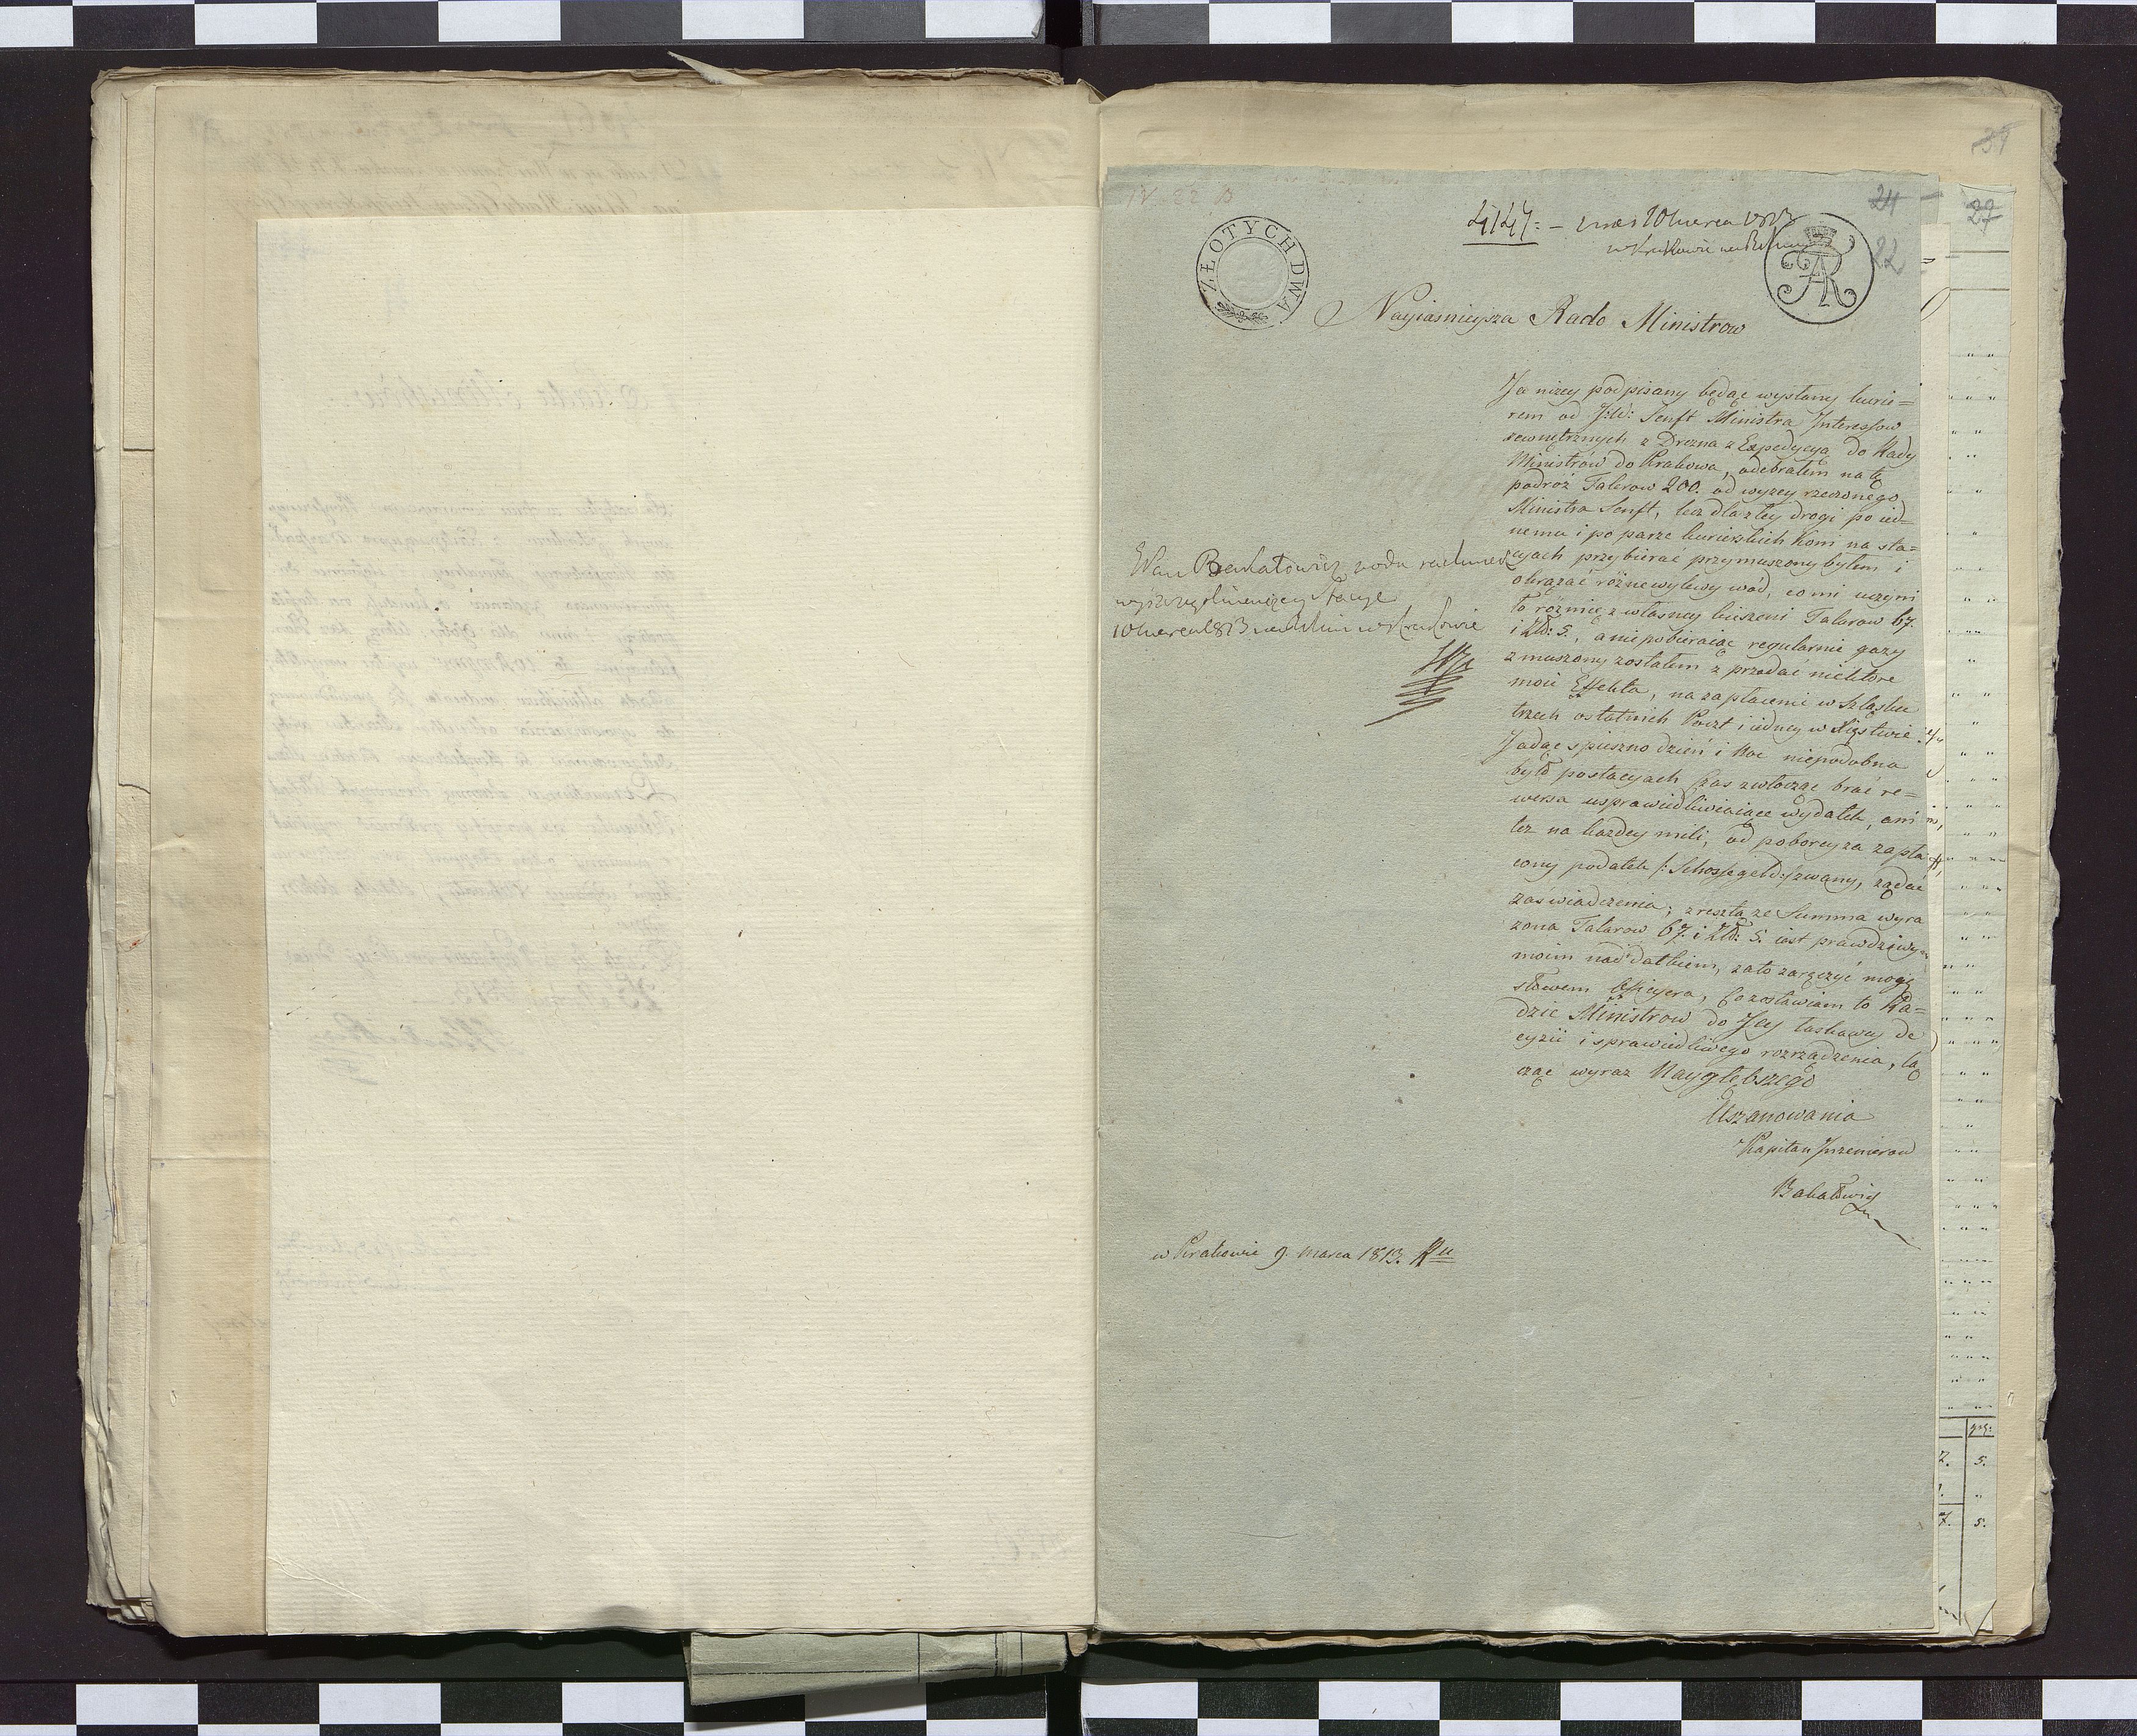 31
24
27
22
IV. 22 B
4147: – 10 marca 1813
w Krakowie
ZŁOTYCH DWA
Nayiasnieysza Rado Ministrow
Ja niżey podpisany będąc wysłany kurie=
rem od J:W: Senft Ministra Interessow
zewnętrznych z Drezna z Expedycyą do Rady
Ministrów do Krakowa, odebrałem na tę
podróż Talarow 200. od wyzey rzeczonego
Ministra Senft, lecz dla złey drogi po ied=
nemu i po parze kurierskich Koni na sta=
cyach przybierać przymuszony byłem i
okrążać różne wylewy wód, co mi uczyni
to róznię z własney kieszeni Talarow 67.
i Zło: 5., a niepobieraiąc regularnie gazy
zmuszony zostałem z przedać niektóre
moie Effekta, na zapłacenie w Szląsku
trzech ostatnich Poczt i iedney w Xięstwie.
Jadąc spieszno dzień i Noc niepodobna
było po stacyach czas zwłocząc brać re=
wersa usprawiedliwiaiące wydatek, ani
tez na kazdey mili, od poborcy za zapła
cony podatek /: Schossegeld :/ zwany, ządać
zaświadczenia; zresztą ze Summa wyra
zona Talarow 67. i Zło: 5. iest prawdziwym
moim nad'datkiem, za to zaręczyć mogę
słowem Officyera, Pozostawiam to Ra=
dzie Ministrow do Jey łaskawey de
cyzii i sprawiedliwego rozrządzenia, łą
cząc wyraz Naygłębszego
Uszanowania
Kapitan Inzenierow
Bakałowicz
JPan Bakałowicz poda rachunek
wyszczególniaiący Stacye
10 marca 1813 w Krakowie
w Krakowie 9. Marca 1813. Ru